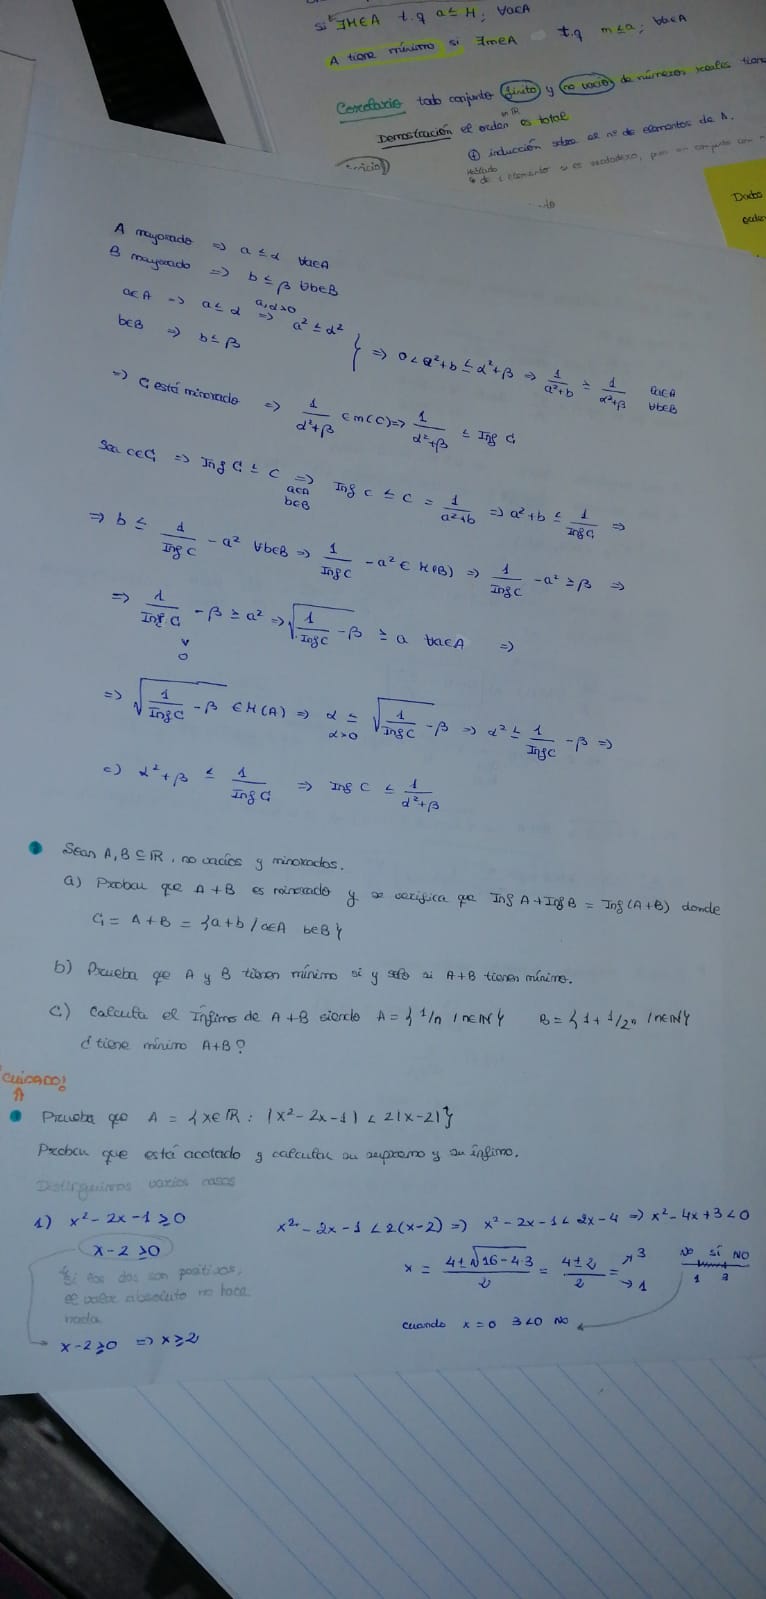 si ∃M∈A t.q a ≤ M; ∀a∈A
A tiene mínimo si ∃m∈A t.q m ≤ a; ∀a∈A
Corolario todo conjunto finito y no vacío de números reales tiene
Demostración el orden en ℝ es total
inducción sobre el nº de elementos de A.
Dados
A mayorado => a ≤ α ∀a∈A
B mayorado => b ≤ β ∀b∈B
a∈A => a ≤ α => a,α>0 a² ≤ α²
b∈B => b ≤ β
} => 0 < a²+b ≤ α²+β => 1/(a²+b) ≥ 1/(α²+β) ∀a∈A ∀b∈B
=> C está minorado => 1/(α²+β) ∈ m(C) => 1/(α²+β) ≤ Inf C
Sea c∈C => Inf C ≤ c => a∈A b∈B Inf C ≤ c = 1/(a²+b) => a²+b ≤ 1/Inf C =>
=> b ≤ 1/Inf C - a² ∀b∈B => 1/Inf C - a² ∈ M(B) => 1/Inf C - a² ≥ β =>
=> 1/Inf C - β ≥ a² => √(1/Inf C - β) ≥ a ∀a∈A =>
0
=> √(1/Inf C - β) ∈ M(A) => α ≤ α>0 √(1/Inf C - β) => α² ≤ 1/Inf C - β =>
=> α²+β ≤ 1/Inf C => Inf C ≤ 1/(α²+β)
Sean A, B ⊆ ℝ, no vacíos y minorados.
a) Probar que A+B es minorado y se verifica que Inf A + Inf B = Inf (A+B) donde
C = A+B = {a+b / a∈A b∈B}
b) Prueba que A y B tienen mínimo si y solo si A+B tienen mínimo.
c) Calcula el Ínfimo de A+B siendo A = {1/n / n∈ℕ} B = {1 + 1/2n / n∈ℕ}
¿ tiene mínimo A+B?
¡CUIDADO!
Prueba que A = {x∈ℝ : |x²-2x-1| < 2|x-2|}
Probar que está acotado y calcular su supremo y su ínfimo.
Distinguimos varios casos
1) x²-2x-1 ≥ 0 x²-2x-1 < 2(x-2) => x²-2x-1 < 2x-4 => x²-4x+3 < 0
x-2 ≥ 0 x = (4±√(16-4·3))/2 = (4±2)/2 = 3 1 NO SÍ NO
1 3
Si los dos son positivos,
el valor absoluto no hace
nada.
cuando x=0 3<0 NO
x-2 ≥ 0 => x ≥ 2